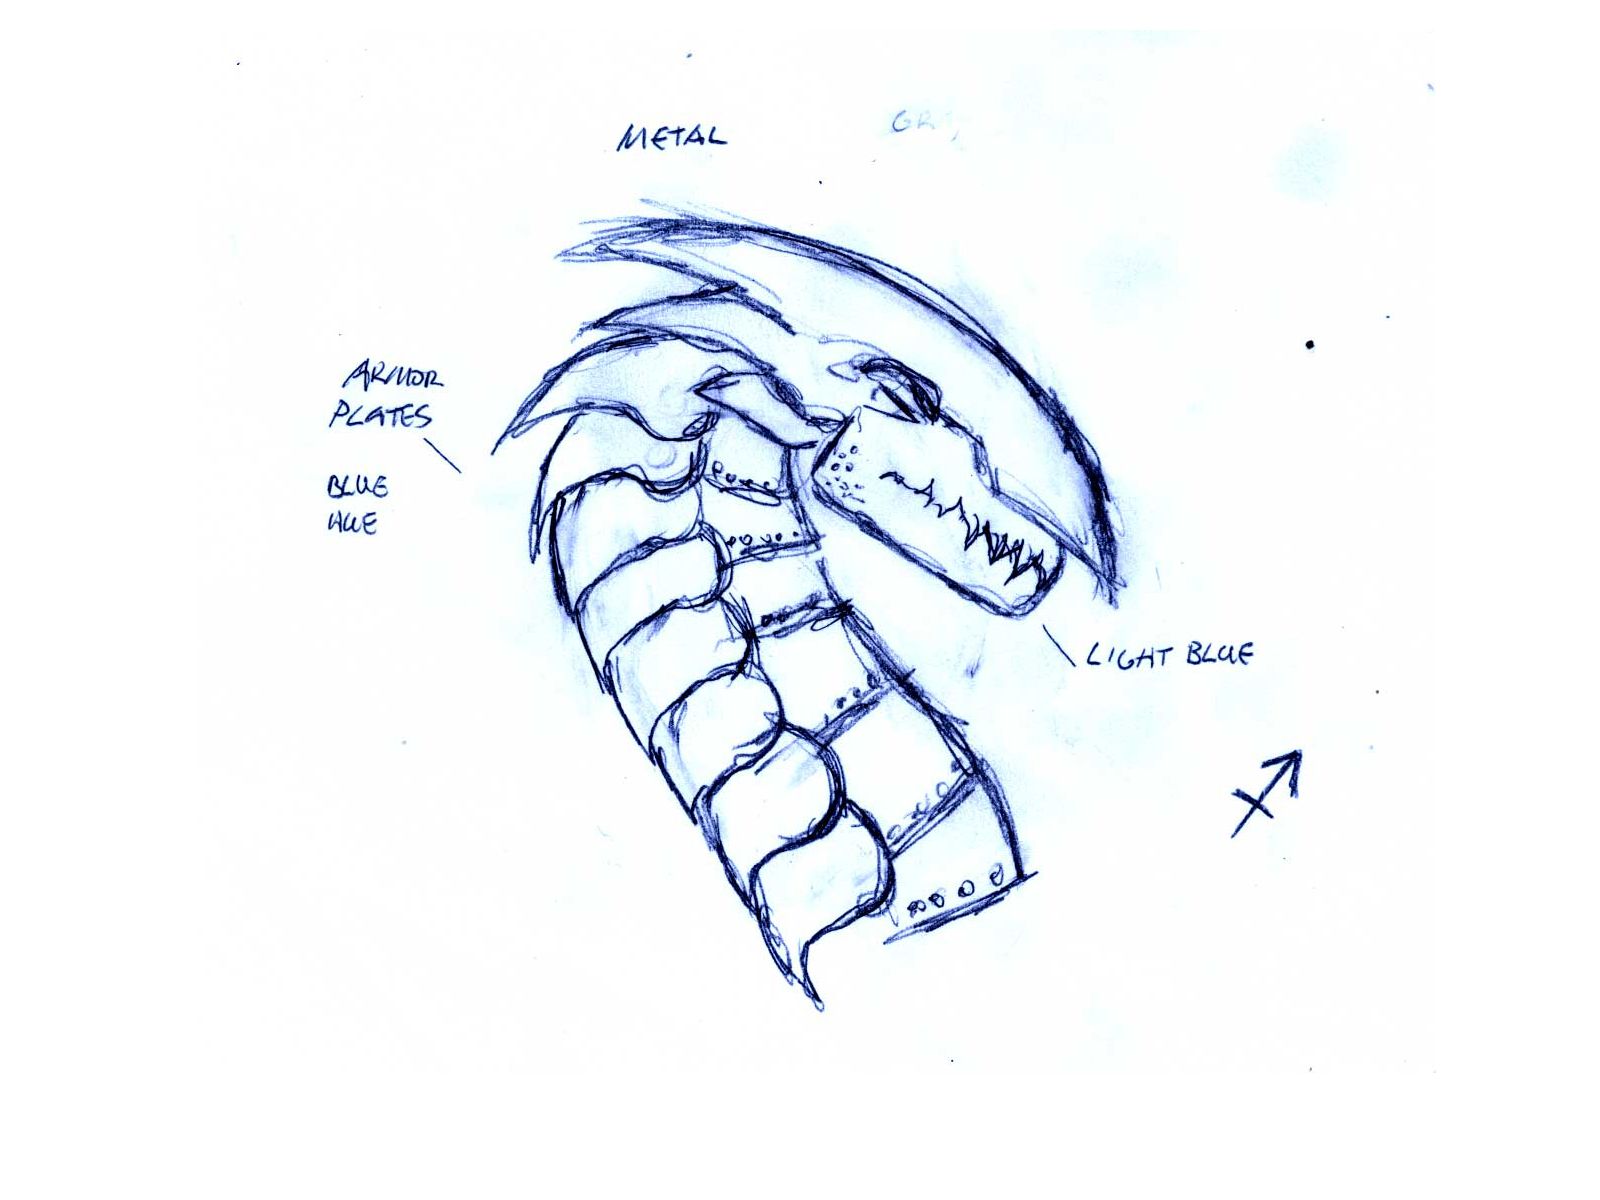 METAL
ARMOR
PLATES
BLUE
HUE
LIGHT BLUE